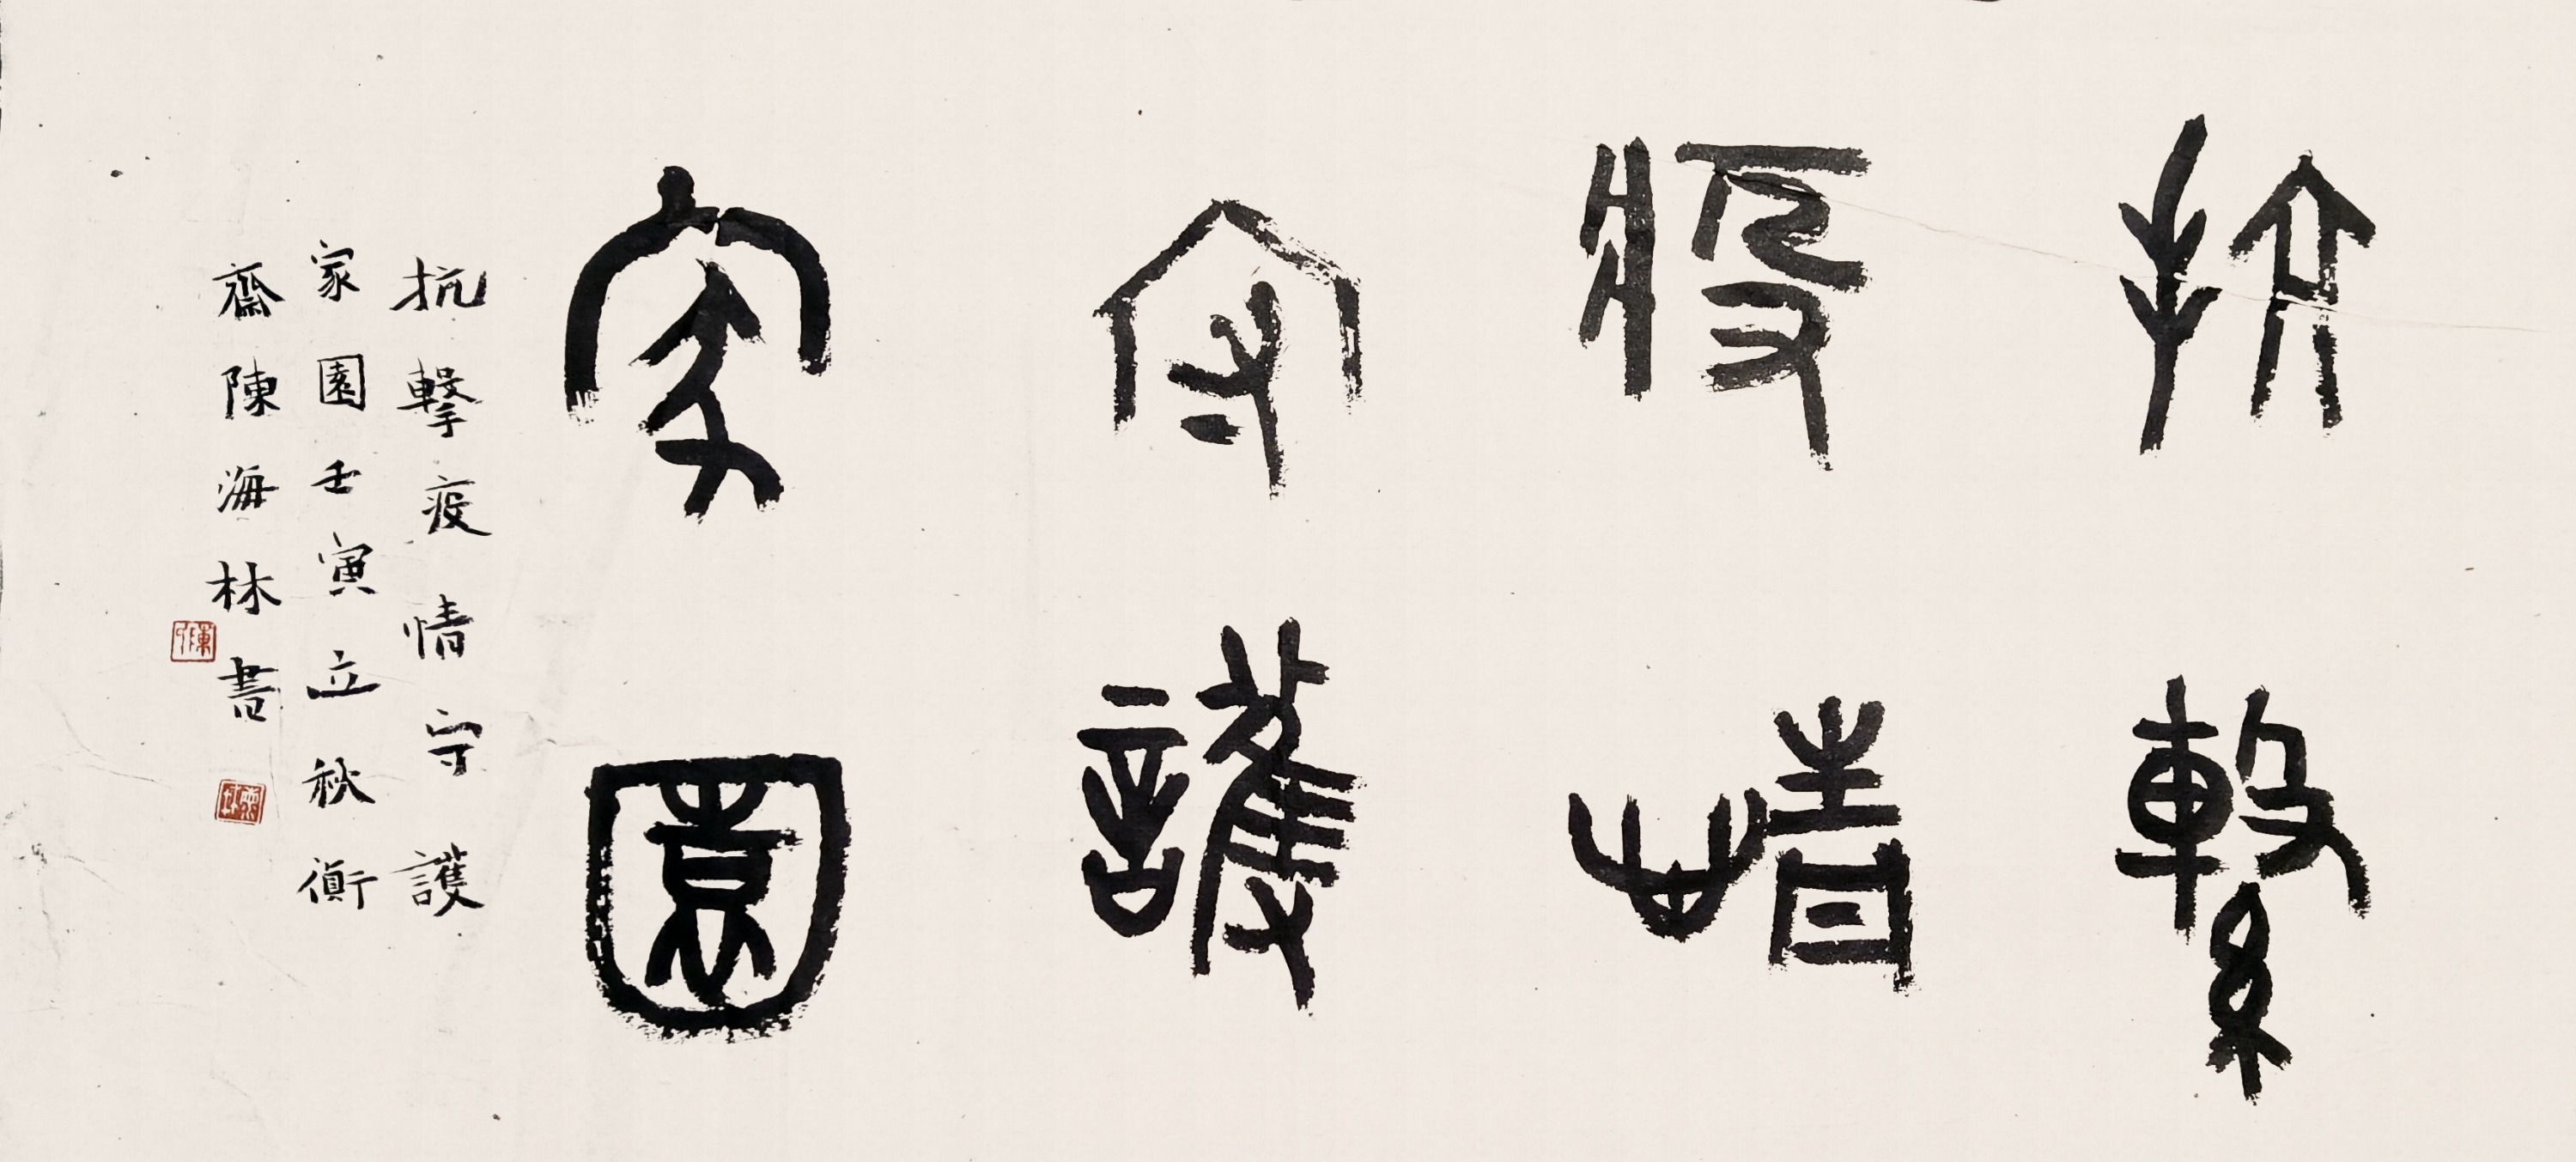 抗擊
疫情
守護
家園
抗擊疫情守護
家園壬寅立秋衡
齋陳海林書